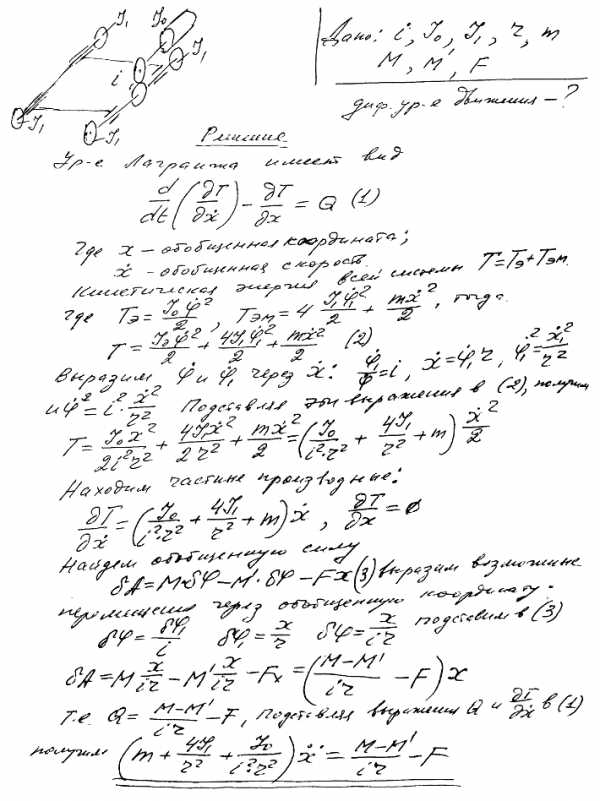 J₁ J₀ J₁
i
J₁ J₁
Дано: i, J₀, J₁, r, m
M, M', F
диф. ур-е движения – ?
Решение
Ур-е Лагранжа имеет вид
d/dt (∂T/∂ẋ) − ∂T/∂x = Q (1)
Где x – обобщенная координата;
ẋ – обобщенная скорость.
Кинетическая энергия всей системы T = Tэ + Tэм.
где Tэ = J₀φ̇²/2, Tэм = 4 J₁φ̇₁²/2 + mẋ²/2, тогда
T = J₀φ̇²/2 + 4J₁φ̇₁²/2 + mẋ²/2 (2)
Выразим φ̇ и φ̇₁ через ẋ: φ̇₁/φ̇ = i, ẋ = φ̇₁r, φ̇₁² = ẋ₁²/r²
и φ̇² = i² · ẋ²/r² Подставляя эти выражения в (2), получим
T = J₀ẋ²/2i²r² + 4J₁ẋ²/2r² + mẋ²/2 = (J₀/i²·r² + 4J₁/r² + m) ẋ²/2
Находим частные производные:
∂T/∂ẋ = (J₀/i²·r² + 4J₁/r² + m) ẋ, ∂T/∂x = 0
Найдем обобщенную силу
δA = M·δφ − M'·δφ − Fx (3) выразим возможные
перемещения через обобщенную координату.
δφ = δφ₁/i δφ₁ = x/r δφ = x/ir подставим в (3)
δA = M x/ir − M' x/ir − Fx = (M−M'/ir − F) x
Т.е. Q = M−M'/ir − F, Подставляя выражения Q и ∂T/∂ẋ в (1)
получим (m + 4J₁/r² + J₀/i²·r²) ẍ = M−M'/ir − F